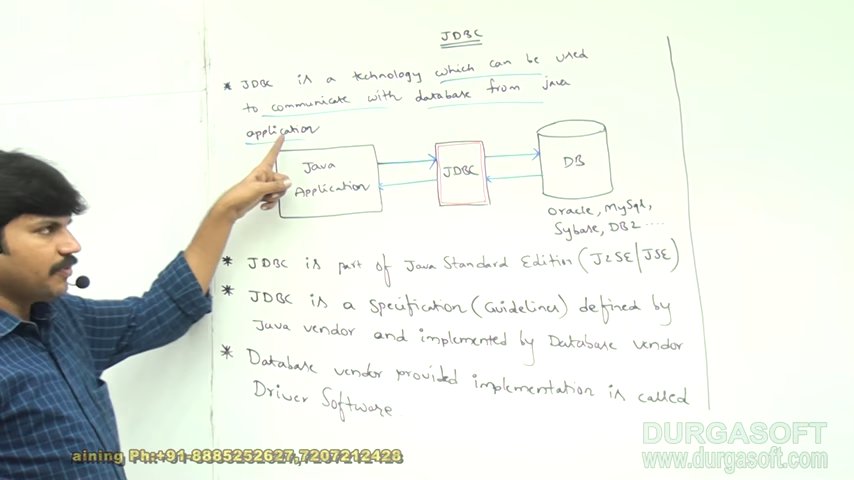 JDBC
* JDBC is a technology which can be used
to communicate with database from java
application
Java
Application
JDBC
DB
Oracle, MySql,
Sybase, DB2 ....
* JDBC is part of Java Standard Edition (J2SE/JSE)
* JDBC is a Specification (Guidelines) defined by
Java vendor and implemented by Database vendor
* Database vendor provided implementation is called
Driver Software
DURGASOFT
www.durgasoft.com
aining Ph:+91-8885252627,7207212428